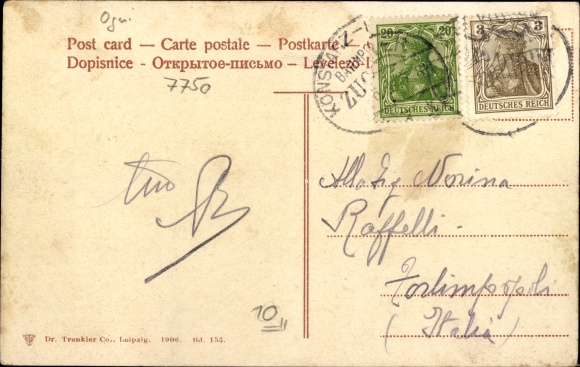 Post card — Carte postale — Postkarte
Dopisnice - Открытое-письмо — Levelező-L
7750
KONSTANZ
BAHNPOST
ZUG
20 20
DEUTSCHES REICH
3 3
DEUTSCHES REICH
tuo B
Alla Sig Norina
Raffelli
Forlimpopoli
(Italia)
10
11
Dr. Trenkler Co., Leipzig. 1906. Bd. 155.